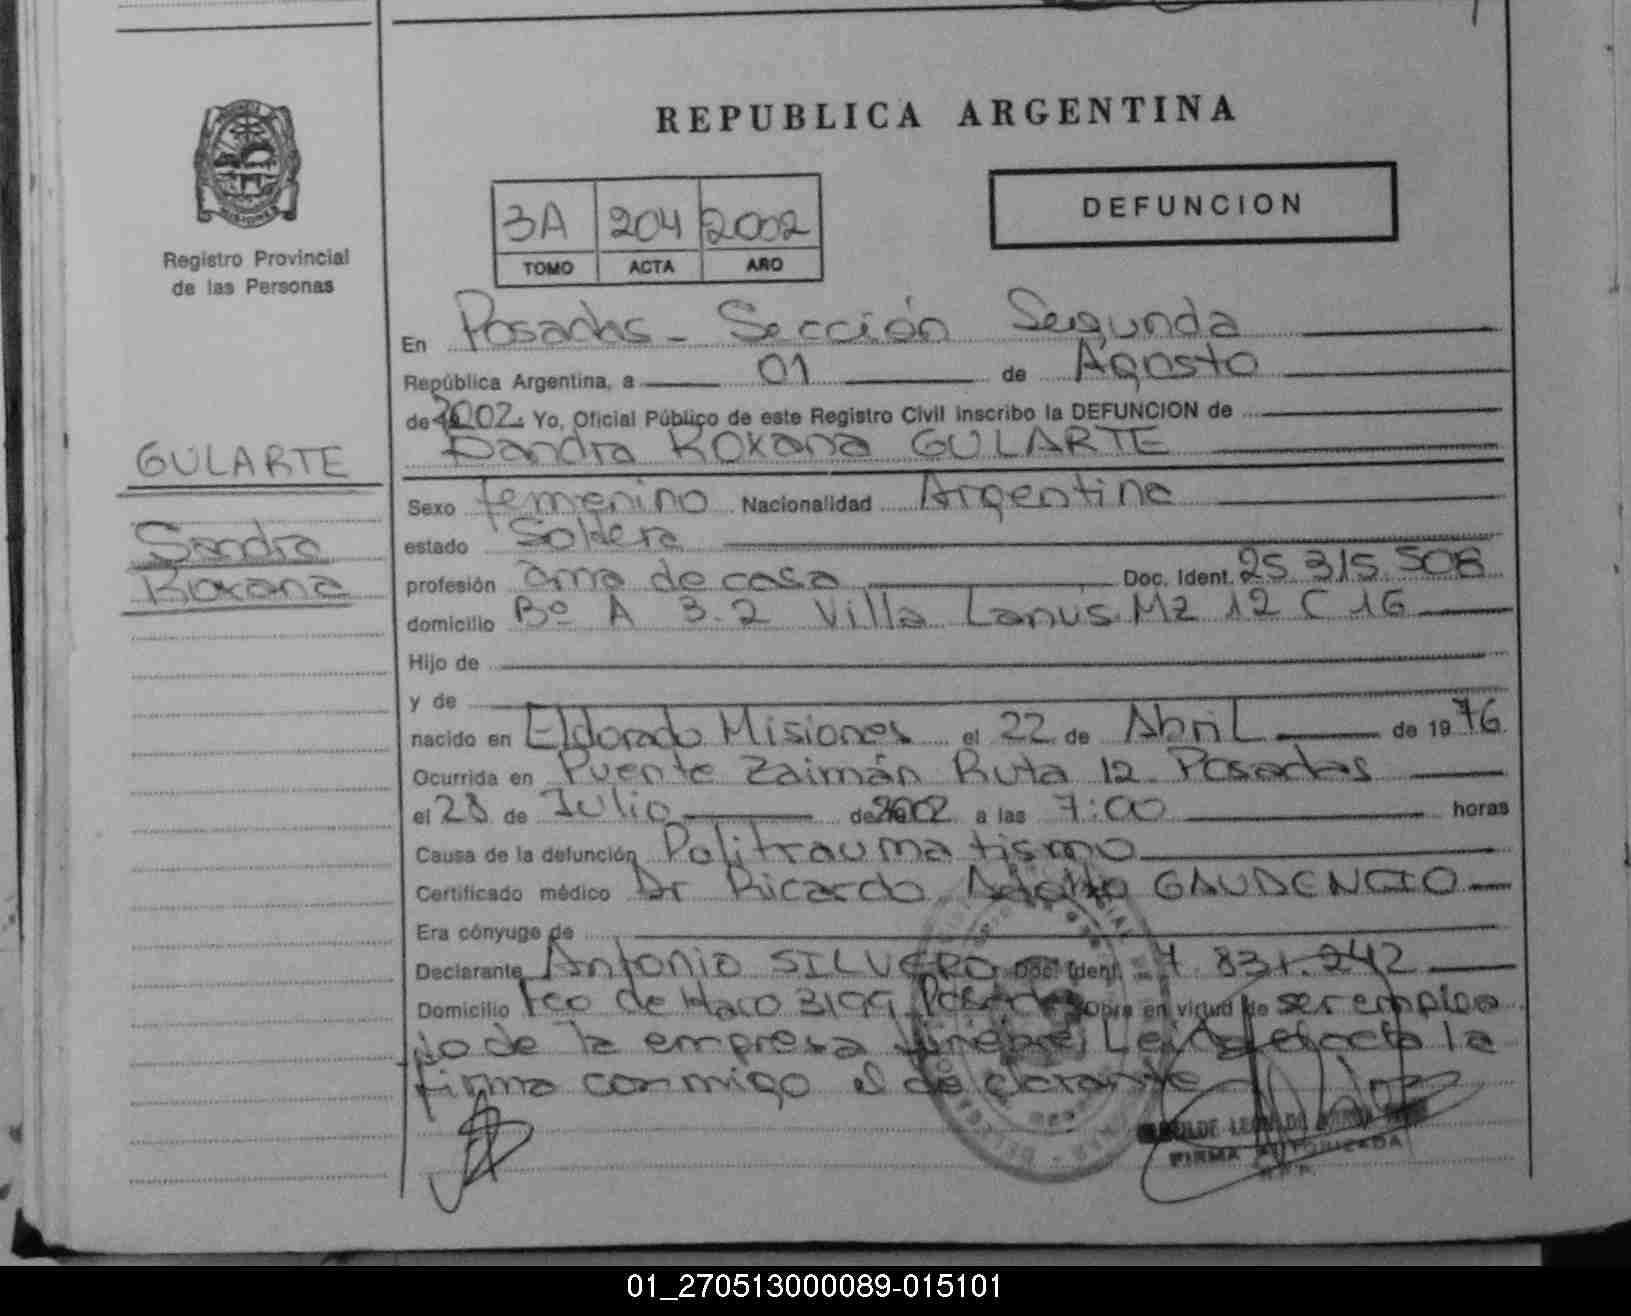 REPUBLICA ARGENTINA
3A 204 2002
TOMO ACTA AÑO
DEFUNCION
MISIONES
Registro Provincial
de las Personas
GULARTE
Sandra
Roxana
En Posadas - Sección Segunda
República Argentina, a 01 de Agosto
de 2002. Yo, Oficial Público de este Registro Civil inscribo la DEFUNCION de
Sandra Roxana GULARTE
Sexo femenino Nacionalidad Argentina
estado Soltera
profesión ama de casa Doc. Ident. 25.315.508
domicilio Bº A 3.2 Villa Lanús Mz 12 C 16
Hijo de
y de
nacido en Eldorado Misiones el 22 de Abril de 1976
Ocurrida en Puente Zaimán Ruta 12 Posadas
el 28 de Julio de 2002 a las 7:00 horas
Causa de la defunción Politraumatismo
Certificado médico Dr Ricardo Adolfo GAUDENCIO
Era cónyuge de
Declarante Antonio SILVERO Doc. Ident. 7.831.242
Domicilio Fco de Haro 3199 Posadas Obra en virtud de ser emplea
do de la empresa fúnebre. Leída el acta la
firma conmigo el declarante
FIRMA AUTORIZADA
01_270513000089-015101